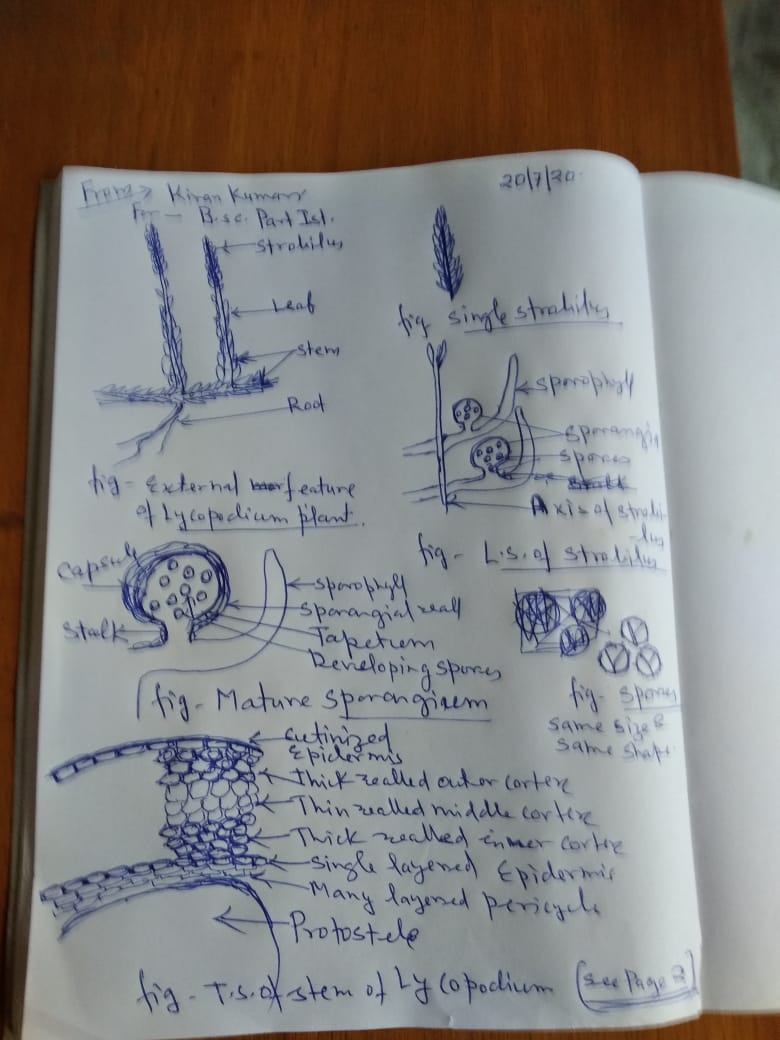 From → Kiran Kumari
20/7/20
For — B.sc. Part Ist.
Strobilus
Leaf
Stem
Root
fig - External feature
of Lycopodium plant.
fig single strobilus
sporophyll
sporangia
spores
Axis of strobi
-lus
fig - L.s. of strobilus
Capsule
Stalk
sporophyll
sporangial wall
Tapetum
Developing spores
fig - Mature sporangium
fig - spores
same size &
same shape.
cutinized
Epidermis
Thick walled outer cortex
Thin walled middle cortex
Thick walled inner cortex
Single layered Epidermis
Many layered pericycle
Protostele
fig - T.s. of stem of Lycopodium
(see Page 2)